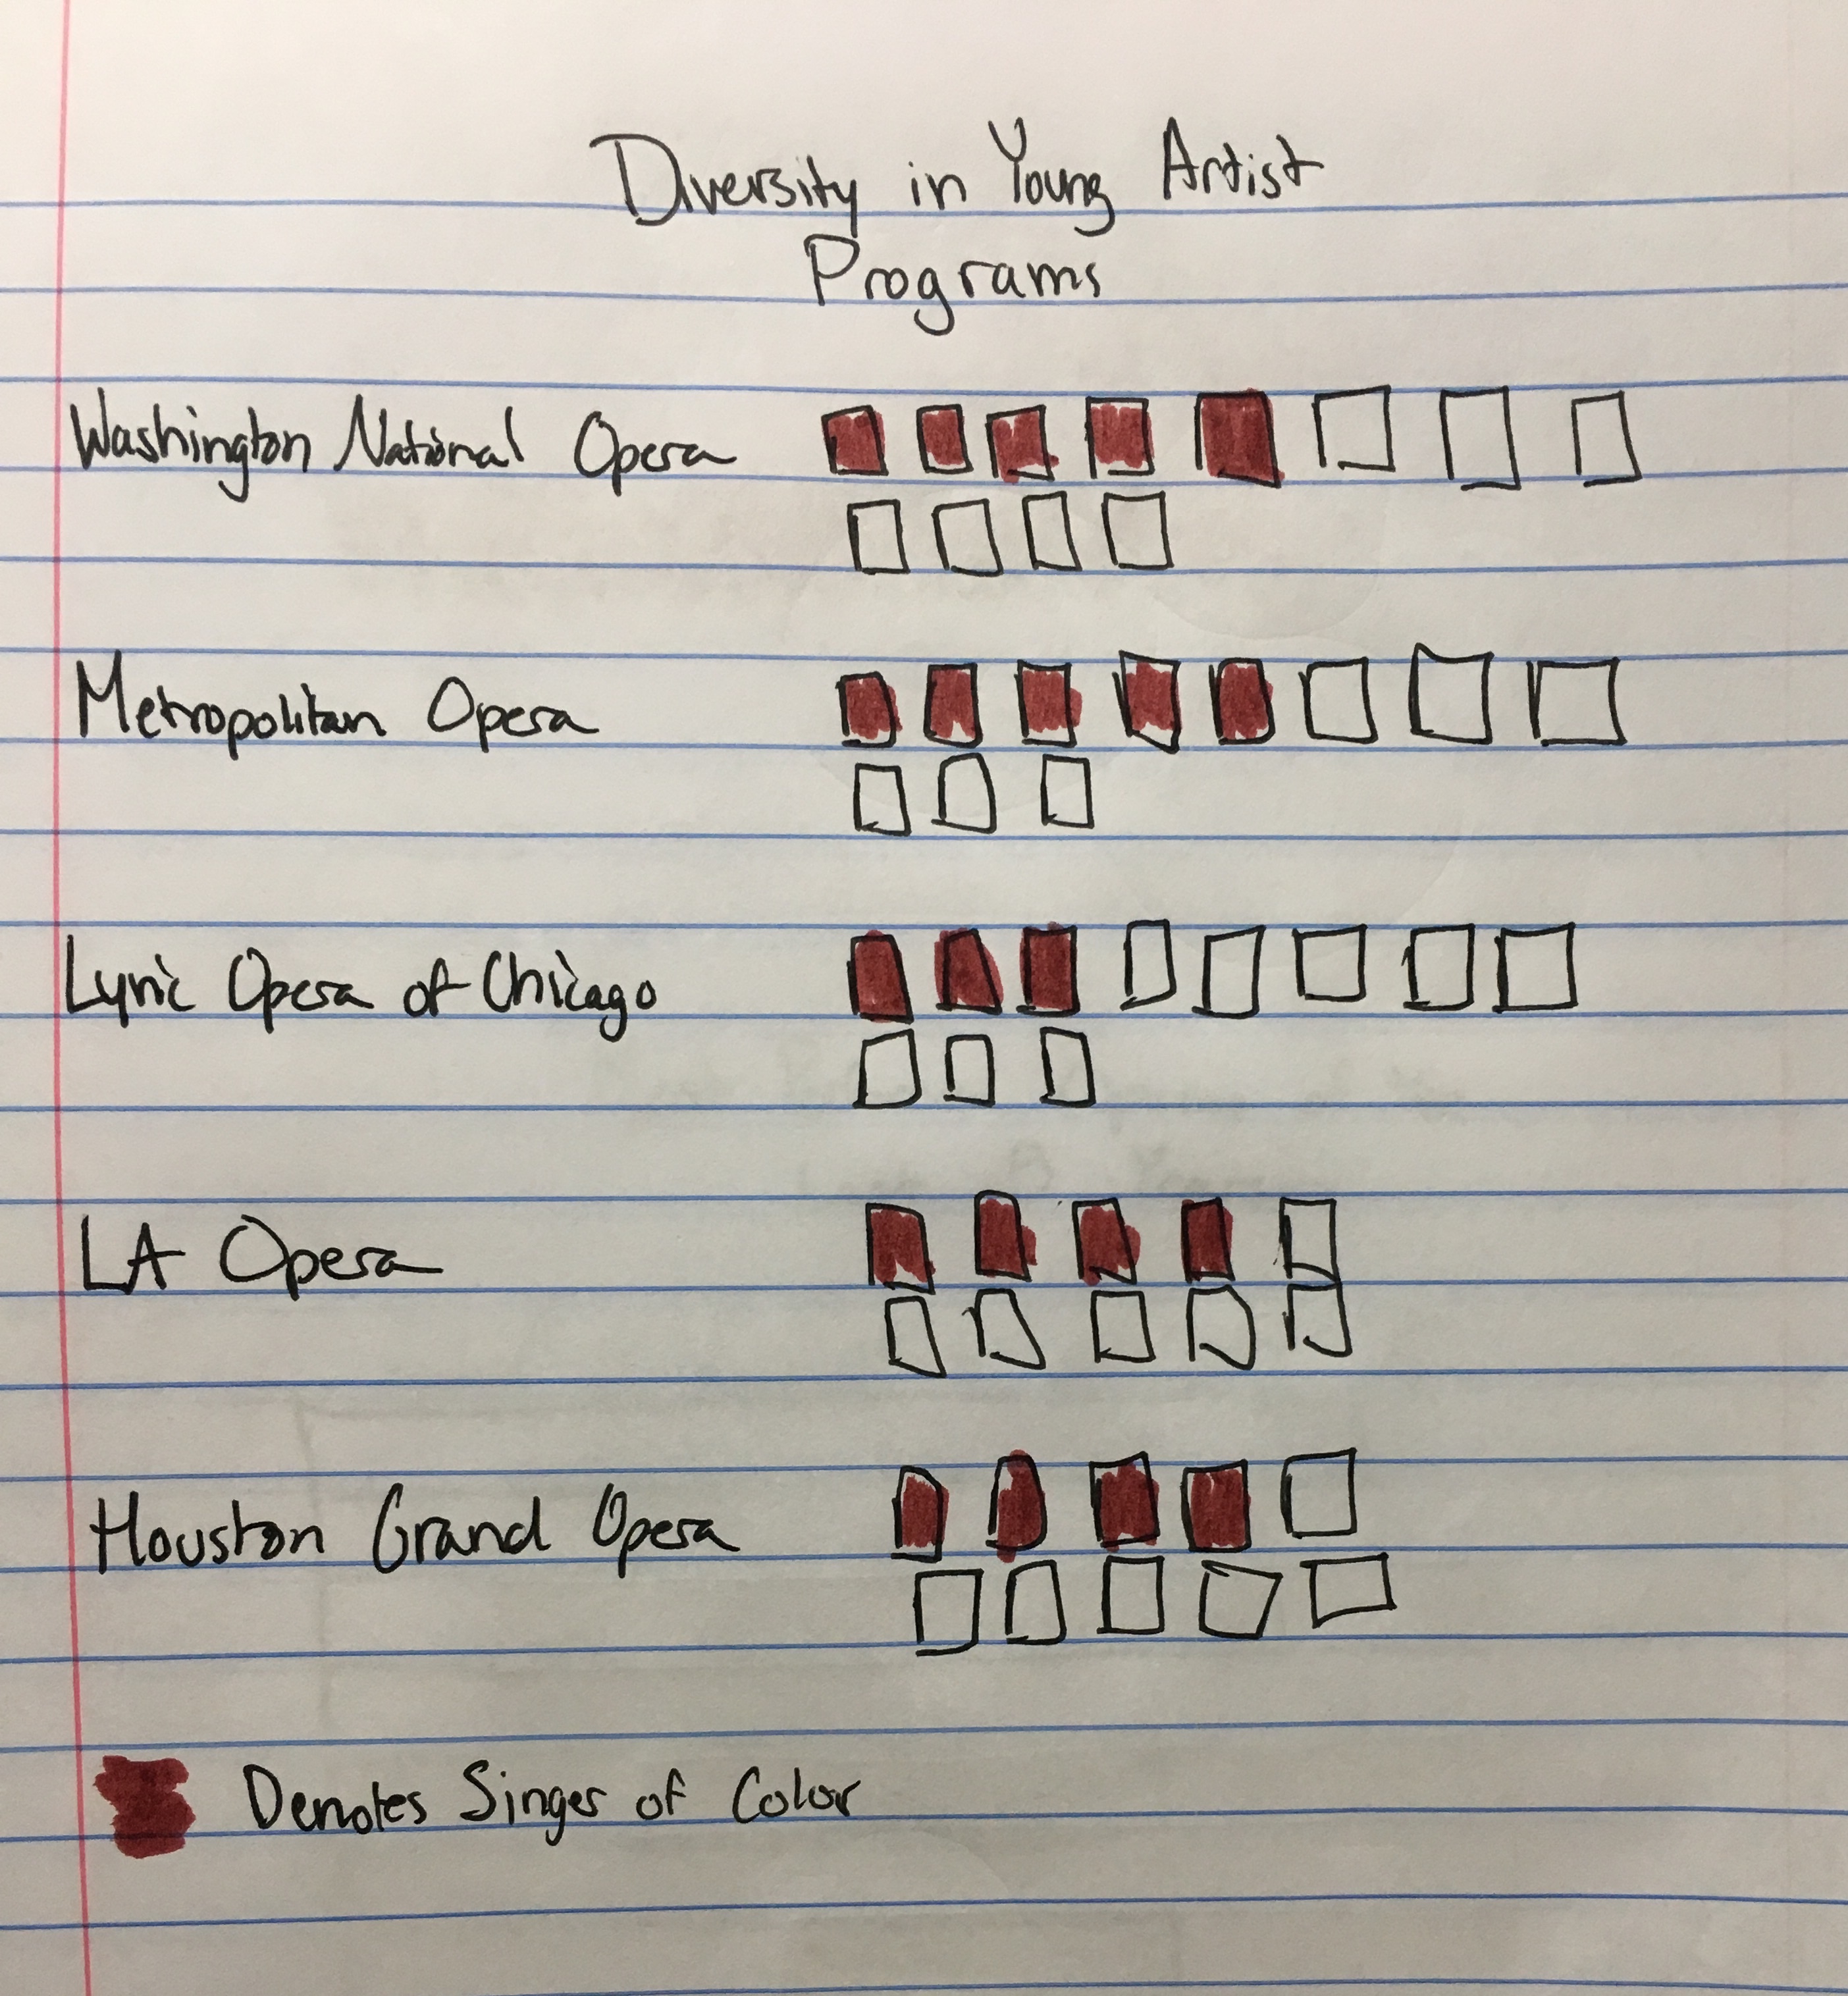 Diversity in Young Artist
Programs
Washington National Opera
Metropolitan Opera
Lyric Opera of Chicago
LA Opera
Houston Grand Opera
Denotes Singer of Color